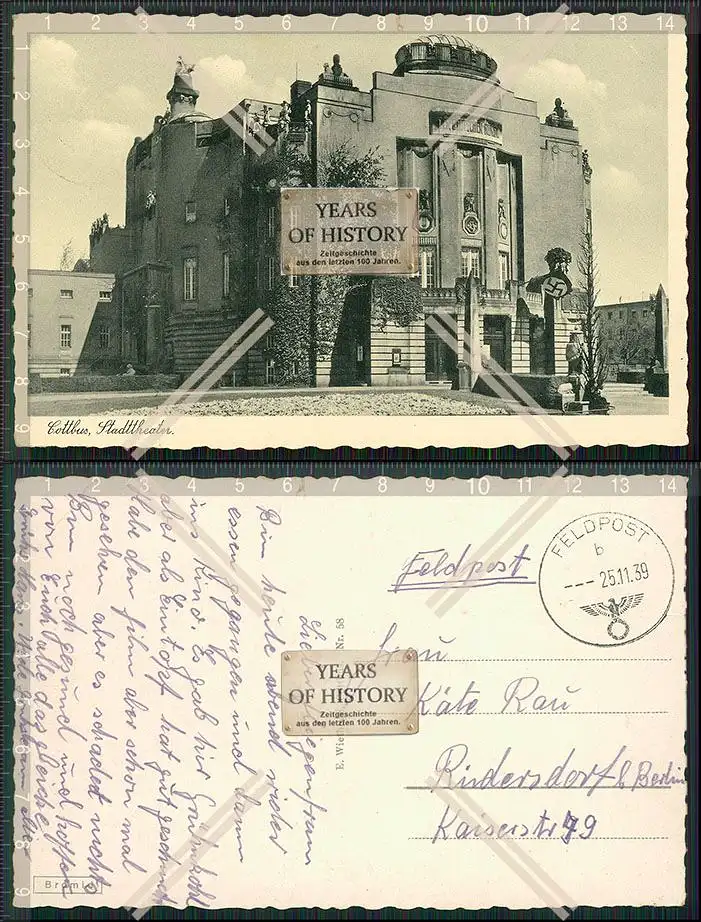 YEARS
OF HISTORY
Zeitgeschichte
aus den letzten 100 Jahren.
Cottbus, Stadttheater.
FELDPOST
b
--- 25.11.39
Feldpost
Frau
Käte Rau
Rüdersdorf b Berlin
Kaiserstr 79
YEARS
OF HISTORY
Zeitgeschichte
aus den letzten 100 Jahren.
Nr. 58
Bin heute abend wieder
essen gegangen und dann
ins Kino. Es gab hier Grünkohl
aber als Eintopf hat gut geschmeckt
Habe den film aber schon mal
gesehen aber es schadet nicht
Bin noch gesund und hoffe
von Euch alle das gleiche